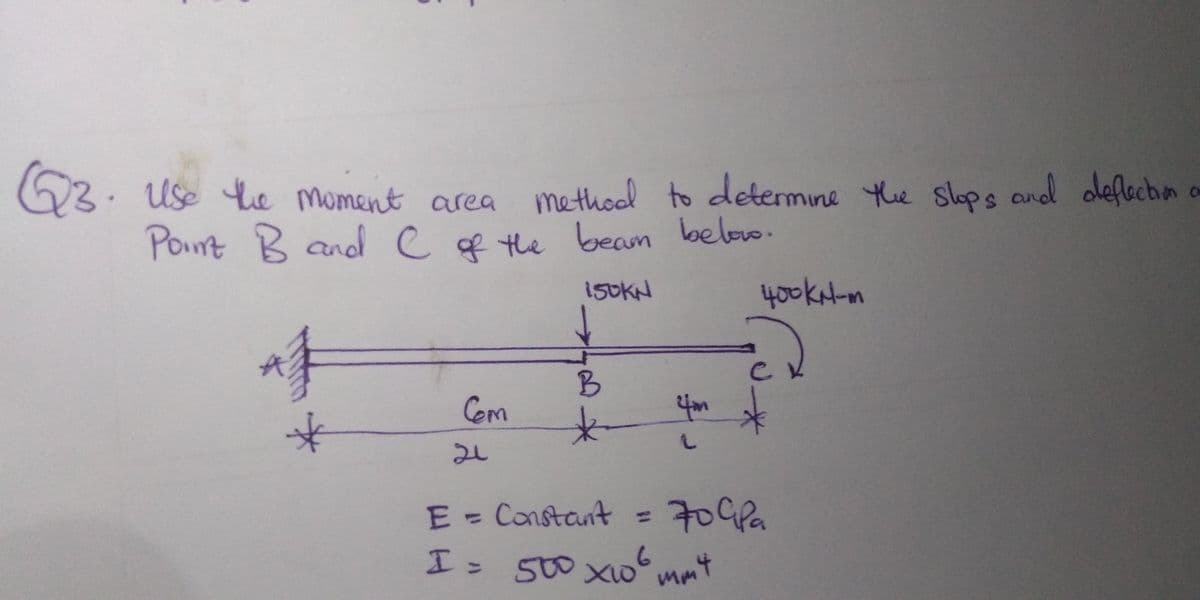 Q3. Use the moment area method to determine the slops and deflection a
Point B and C of the beam below.
150KN 400kN-m
A
B C
6m 4m
2I I
E = Constant = 70GPa
I = 500 x10⁶ mm⁴